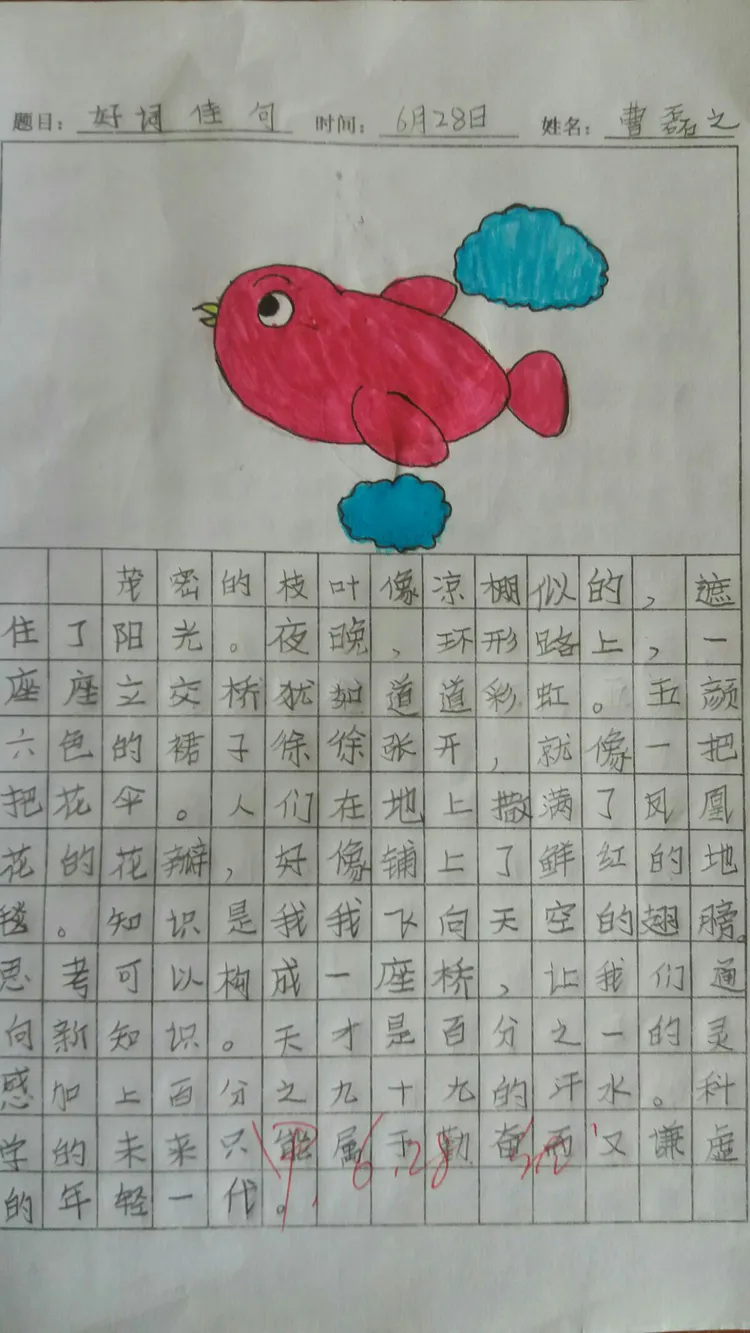 题目：好词佳句 时间：6月28日 姓名：曹磊之
茂密的枝叶像凉棚似的，遮
住了阳光。夜晚，环形路上，一
座座立交桥犹如道道彩虹。五颜
六色的裙子徐徐张开，就像一把
把花伞。人们在地上撒满了凤凰
花的花瓣，好像铺上了鲜红的地
毯。知识是我我飞向天空的翅膀。
思考可以构成一座桥，让我们通
向新知识。天才是百分之一的灵
感加上百分之九十九的汗水。科
学的未来只能属于勤奋而又谦虚
的年轻一代。
6.28